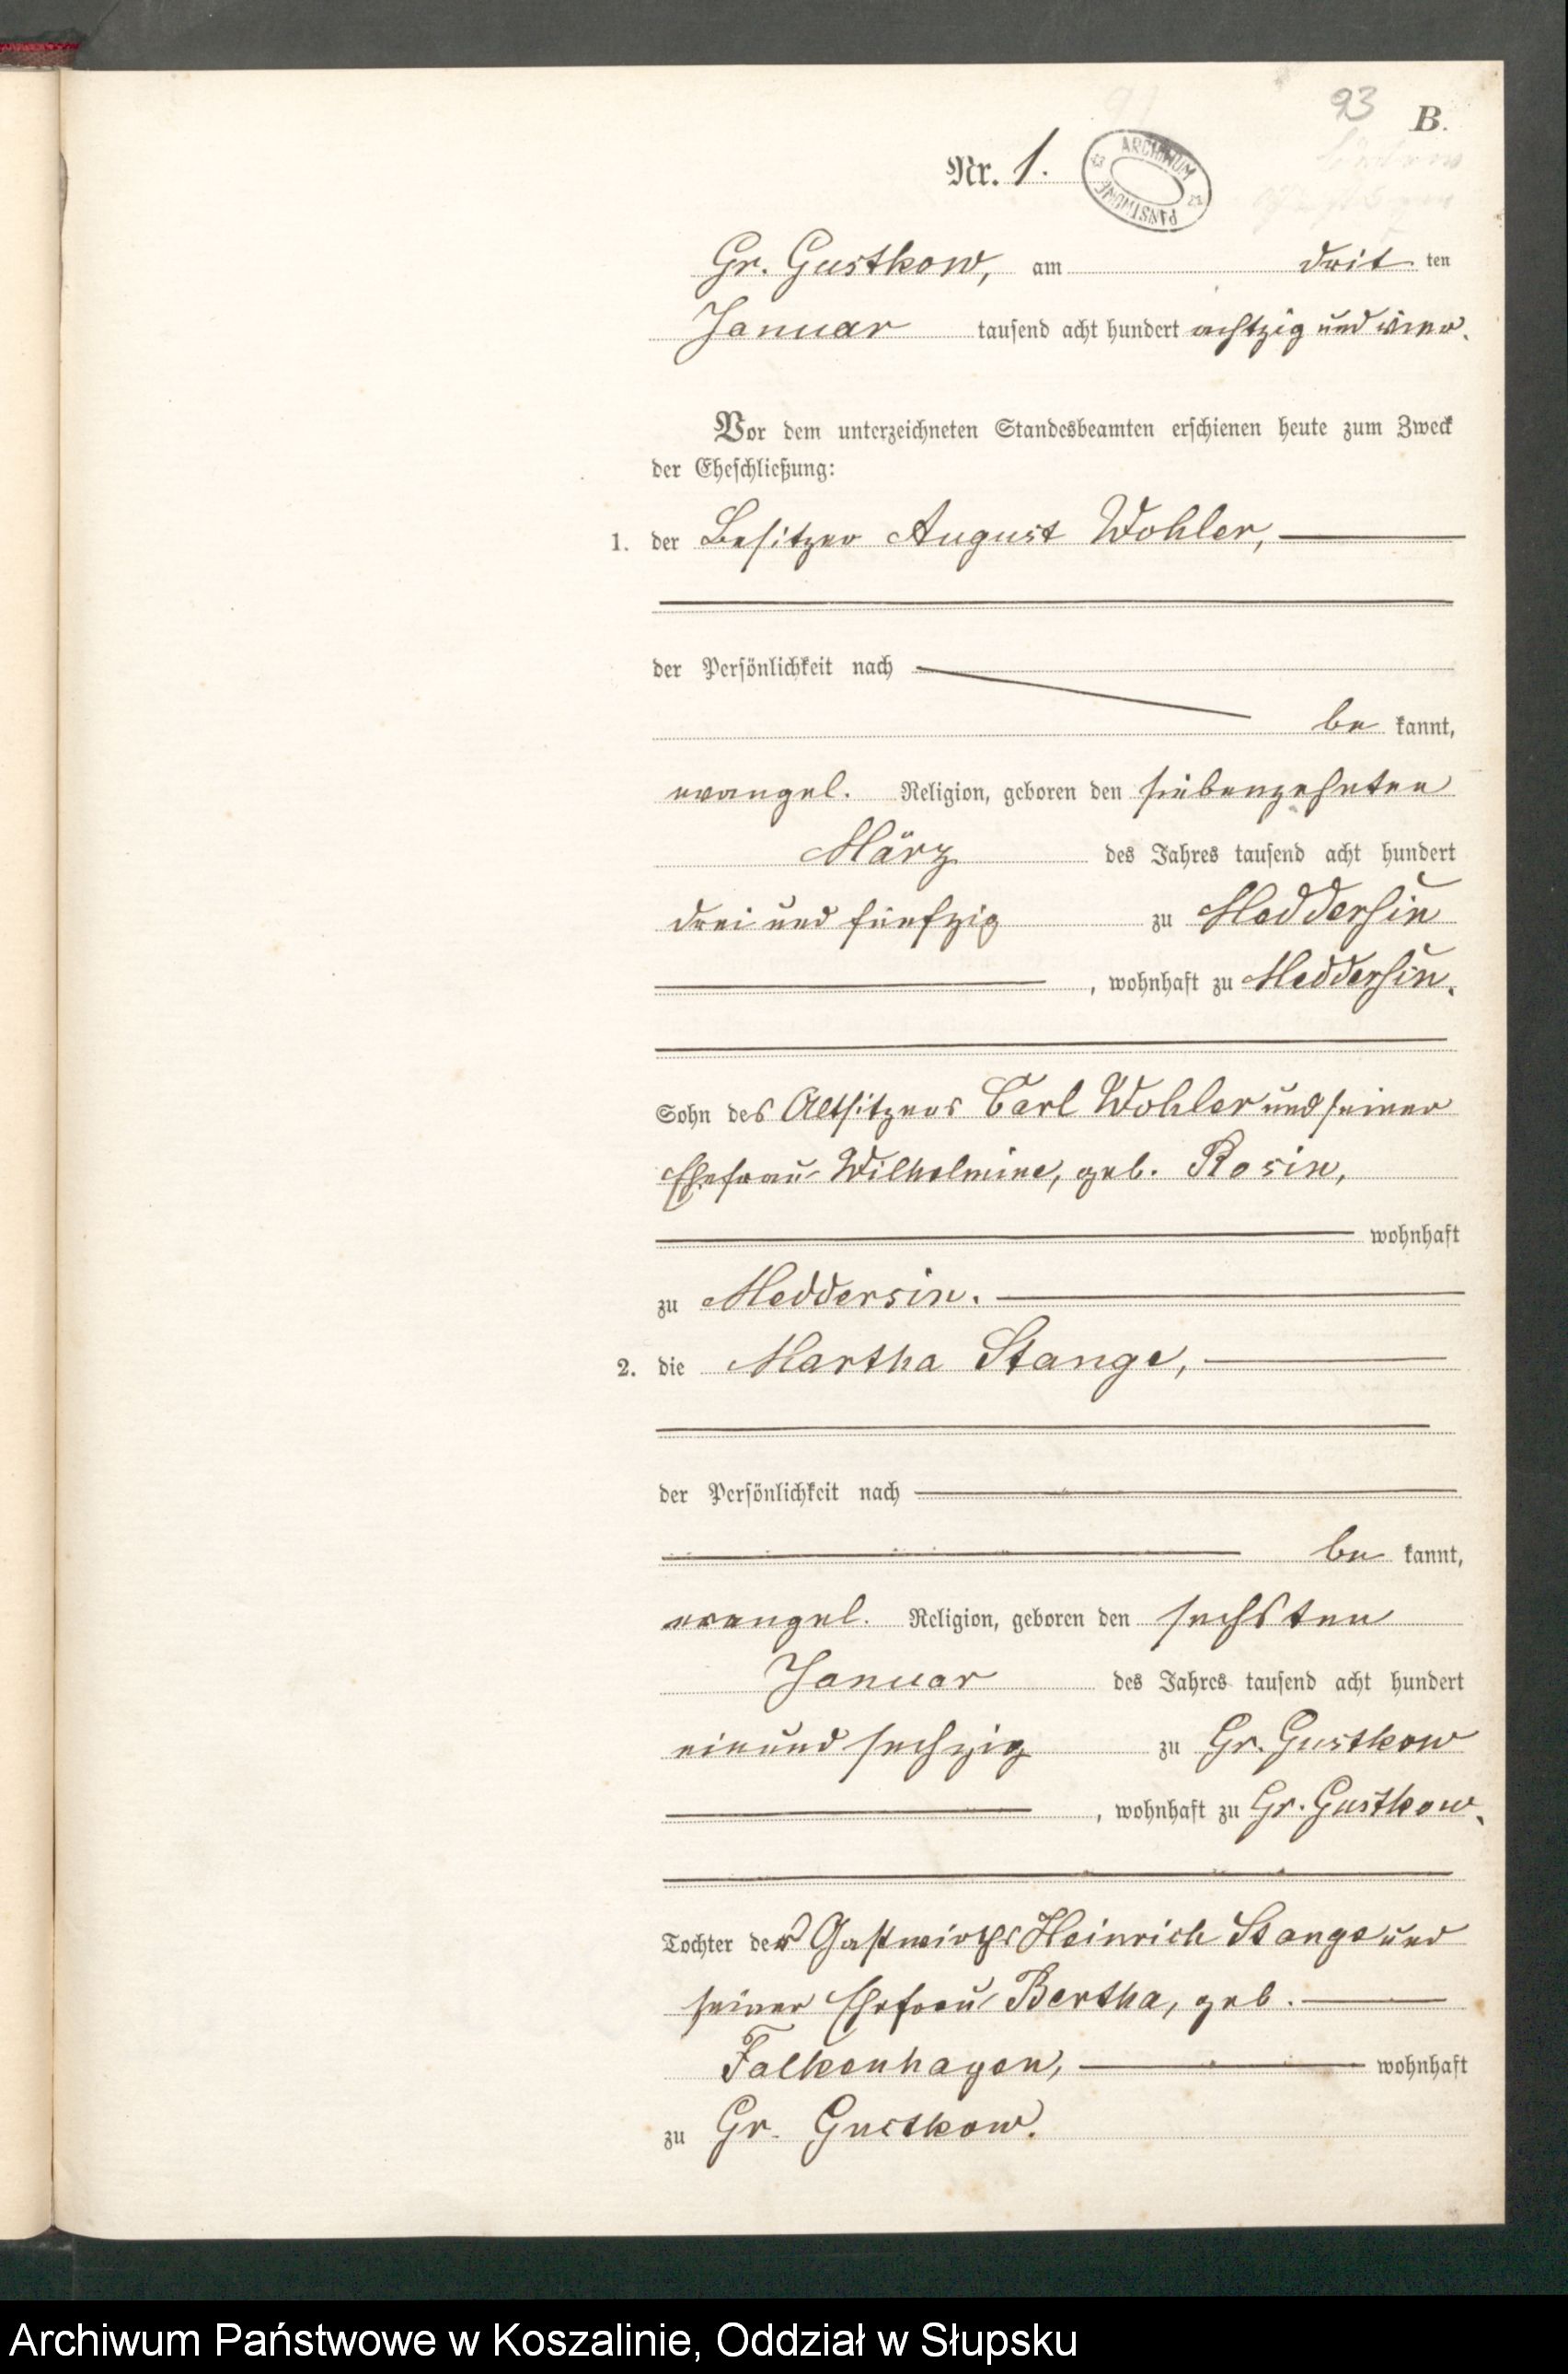 93
B.
Nr. 1.
ARCHIWUM PAŃSTWOWE
Gr. Gustkow, am drit ten
Januar tausend acht hundert achtzig und vier.
Vor dem unterzeichneten Standesbeamten erschienen heute zum Zweck
der Eheschließung:
1. der Besitzer August Wohler,
der Persönlichkeit nach
be kannt,
evangel. Religion, geboren den siebenzehnten
März des Jahres tausend acht hundert
drei und fünfzig zu Meddersin
, wohnhaft zu Meddersin.
Sohn des Altsitzers Carl Wohler und seiner
Ehefrau Wilhelmine, geb. Rosin,
wohnhaft
zu Meddersin.
2. die Martha Stange,
der Persönlichkeit nach
be kannt,
evangel. Religion, geboren den sechsten
Januar des Jahres tausend acht hundert
ein und sechzig zu Gr. Gustkow
, wohnhaft zu Gr. Gustkow.
Tochter des Gastwirths Heinrich Stange und
seiner Ehefrau Bertha, geb.
Falkenhagen, wohnhaft
zu Gr. Gustkow.
Archiwum Państwowe w Koszalinie, Oddział w Słupsku